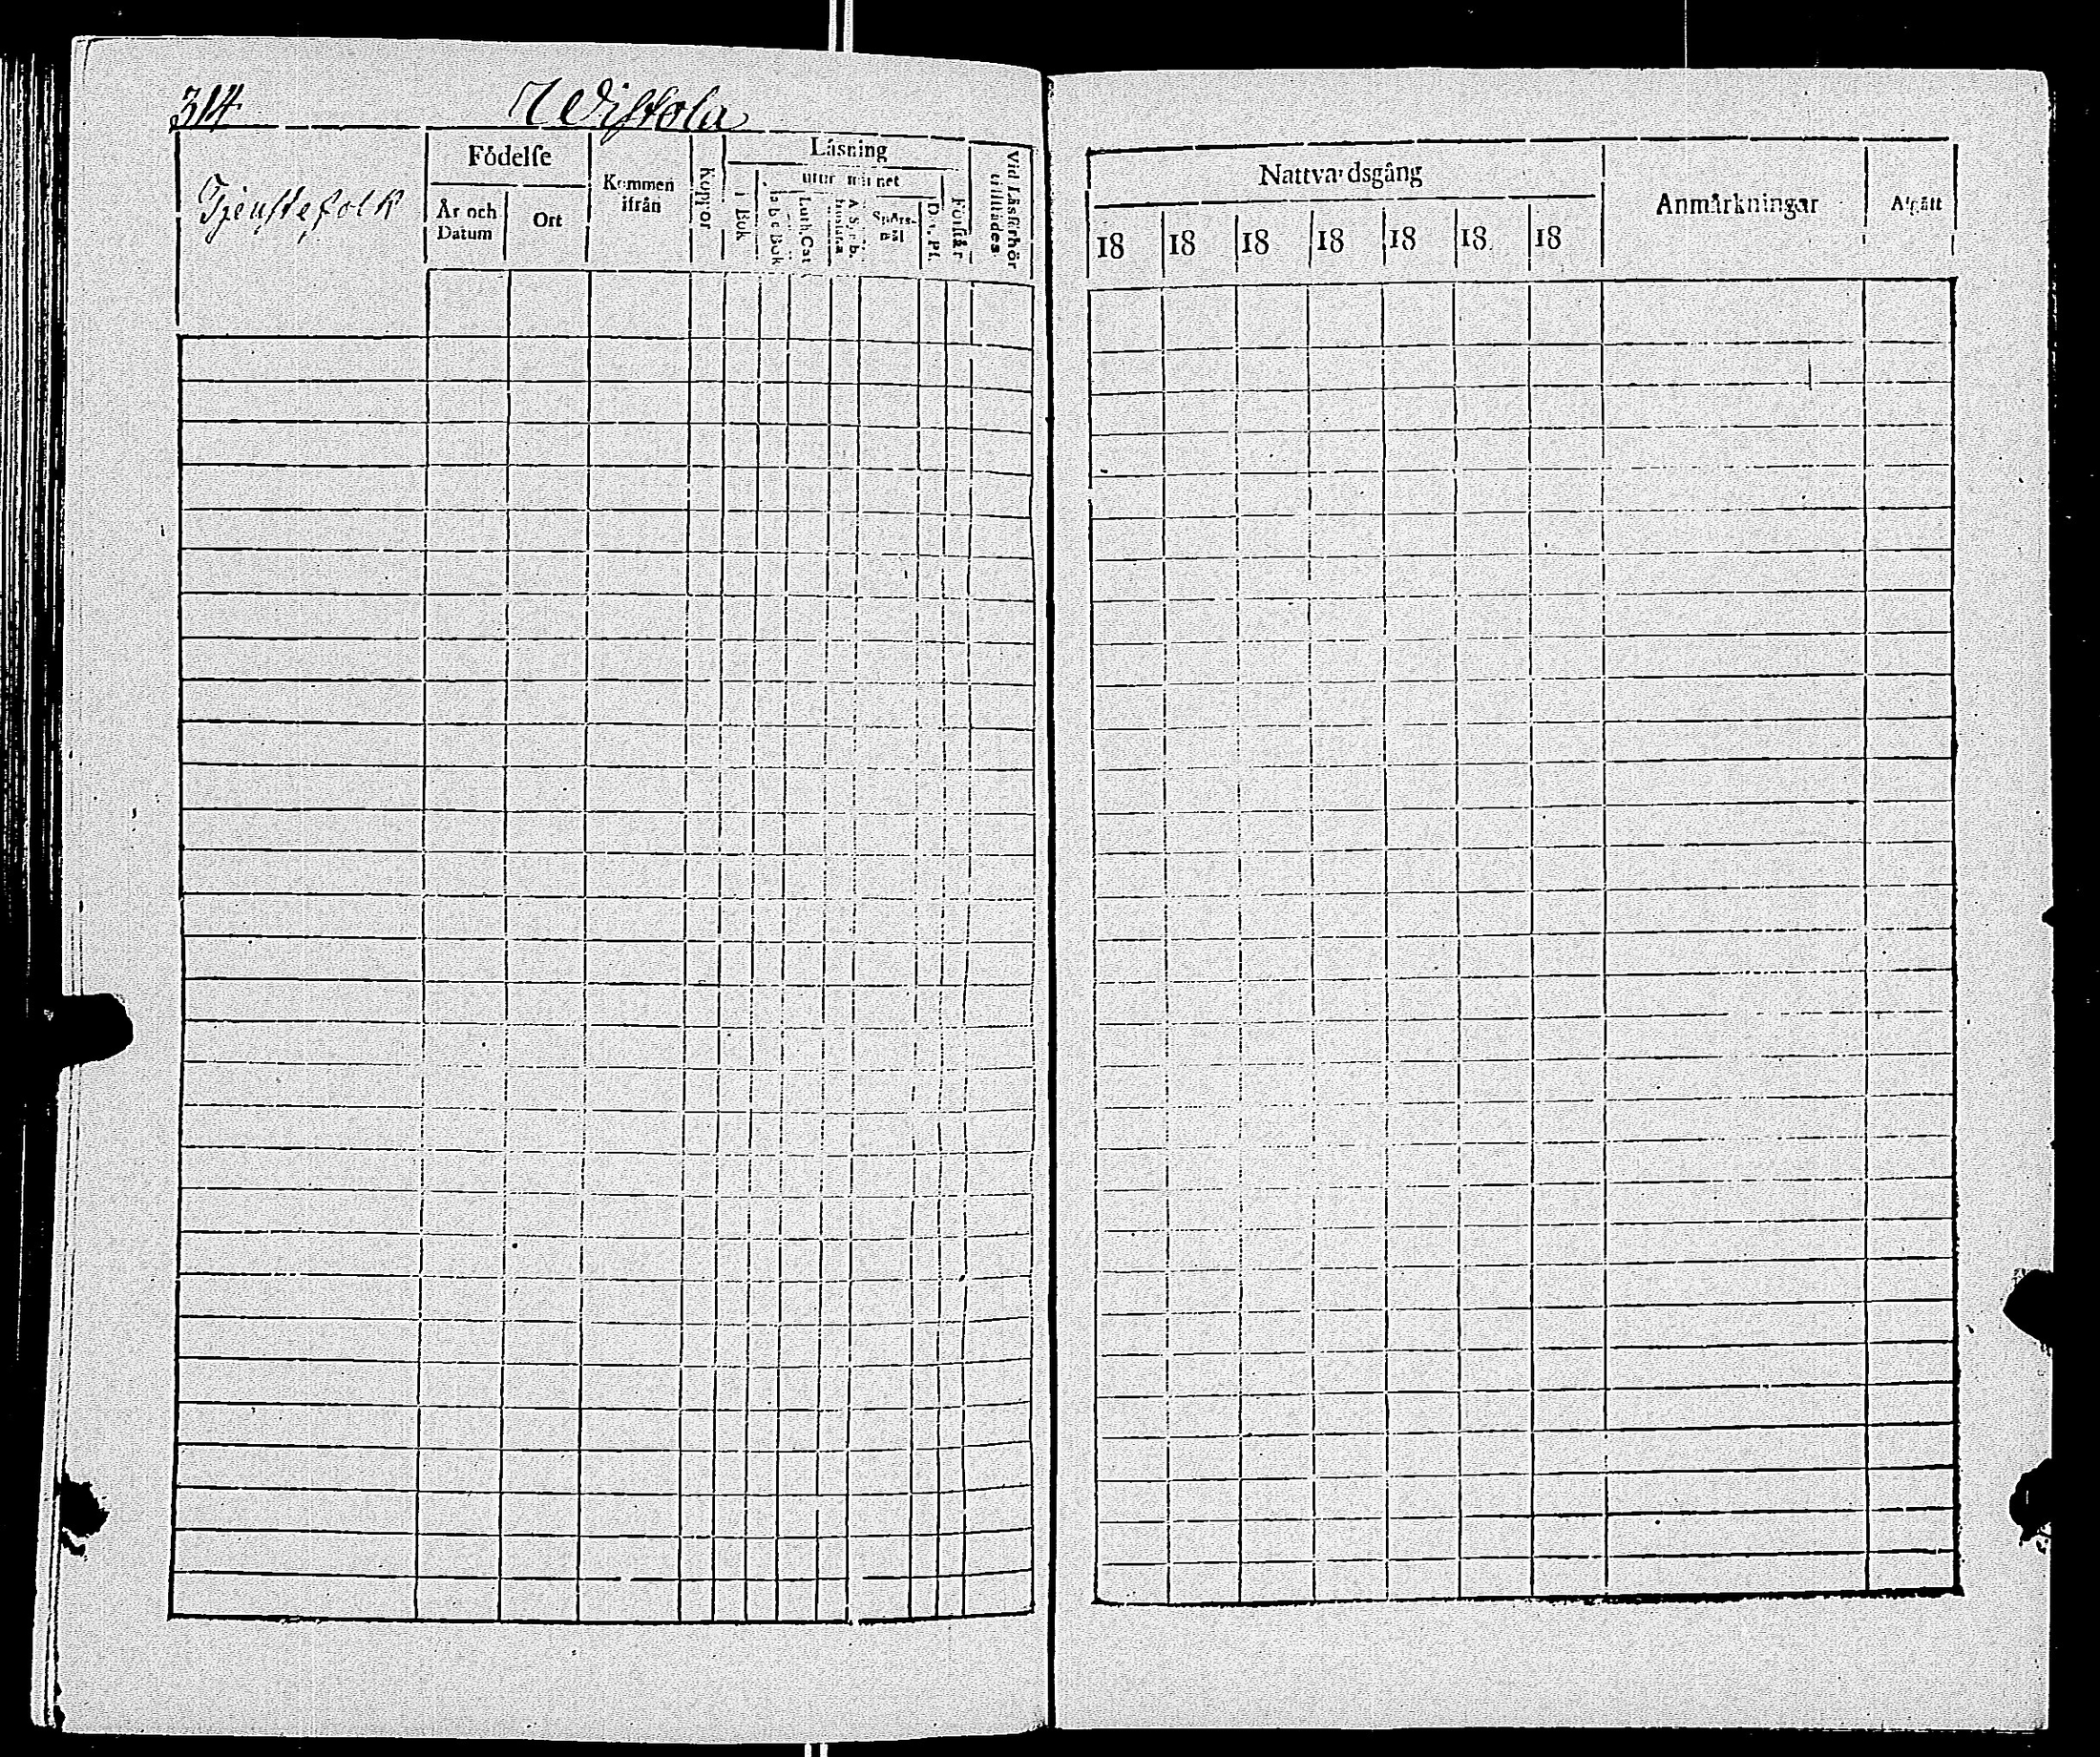 314 Wistola
Tjenstefolk
Födelse
År och Datum
Ort
Kommen ifrån
Koppor
Läsning
i Bok
utur minnet
a b c Bok
Luth. Cat
A. Symb. hustafla
Spörsmål
Dav. Ps.
Förstår
Vid Läsförhör tillstädes
Nattvardsgång
18 18 18 18 18 18 18
Anmärkningar
Afgått